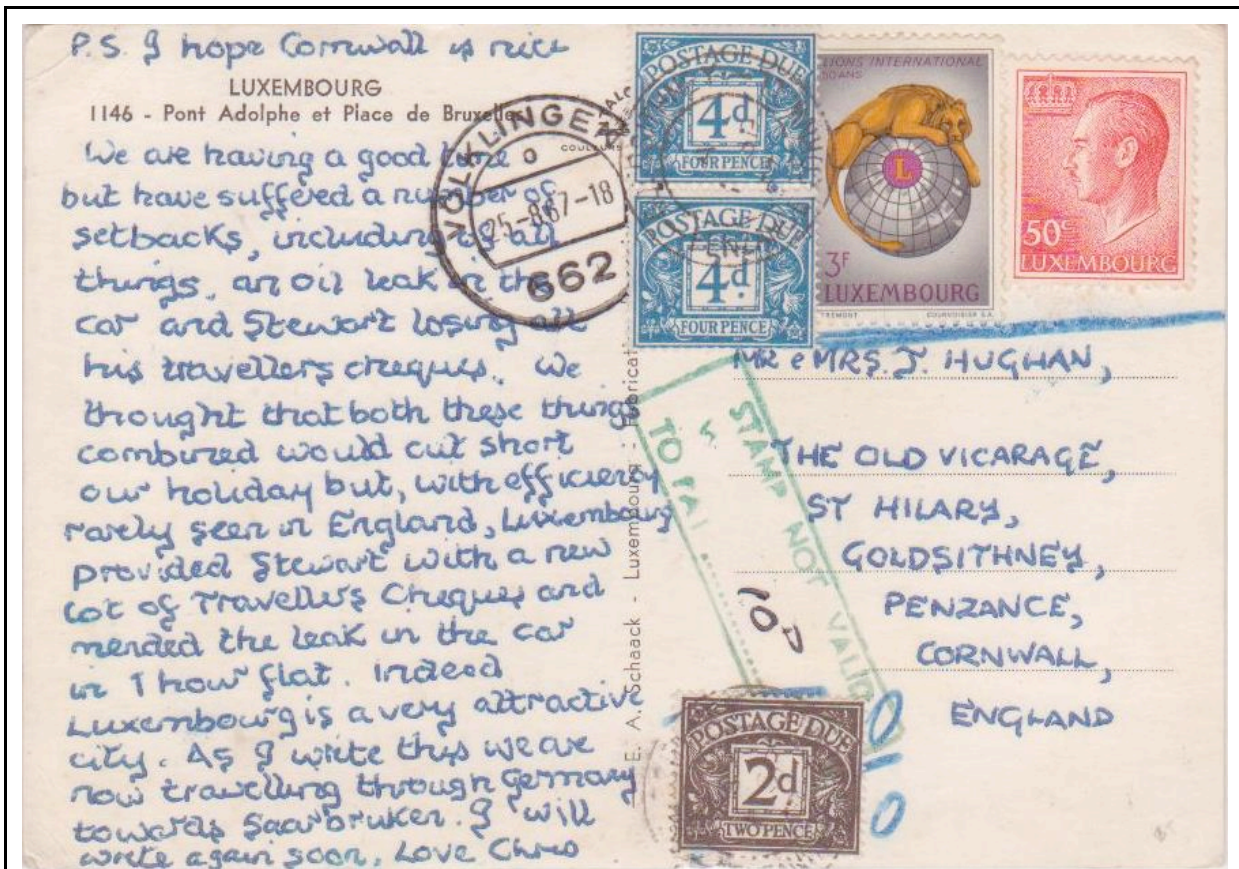 P.S. I hope Cornwall is nice
LUXEMBOURG
1146 - Pont Adolphe et Place de Bruxelles
We are having a good time
but have suffered a number of
setbacks, including of all
things, an oil leak in the
car and Stewart losing all
his travellers cheques. We
thought that both these things
combined would cut short
our holiday but, with efficiency
rarely seen in England, Luxembourg
provided Stewart with a new
lot of Travellers Cheques and
mended the leak in the car
in 1 hour flat. Indeed
Luxembourg is a very attractive
city. As I write this we are
now travelling through Germany
towards Saarbruken. I will
write again soon, Love Chris
VÖLKLINGEN
25-8.67-18
662
COULEURS
E. A. Schaack - Luxembourg
POSTAGE DUE
4d
FOUR PENCE
POSTAGE DUE
4d
FOUR PENCE
LIONS INTERNATIONAL
50 ANS
L
3F
LUXEMBOURG
COURVOISIER S.A.
50c
LUXEMBOURG
MR & MRS. J. HUGHAN,
THE OLD VICARAGE,
ST HILARY,
GOLDSITHNEY,
PENZANCE,
CORNWALL,
ENGLAND
STAMP NOT VALID
TO PAY
10D
POSTAGE DUE
2d
TWO PENCE